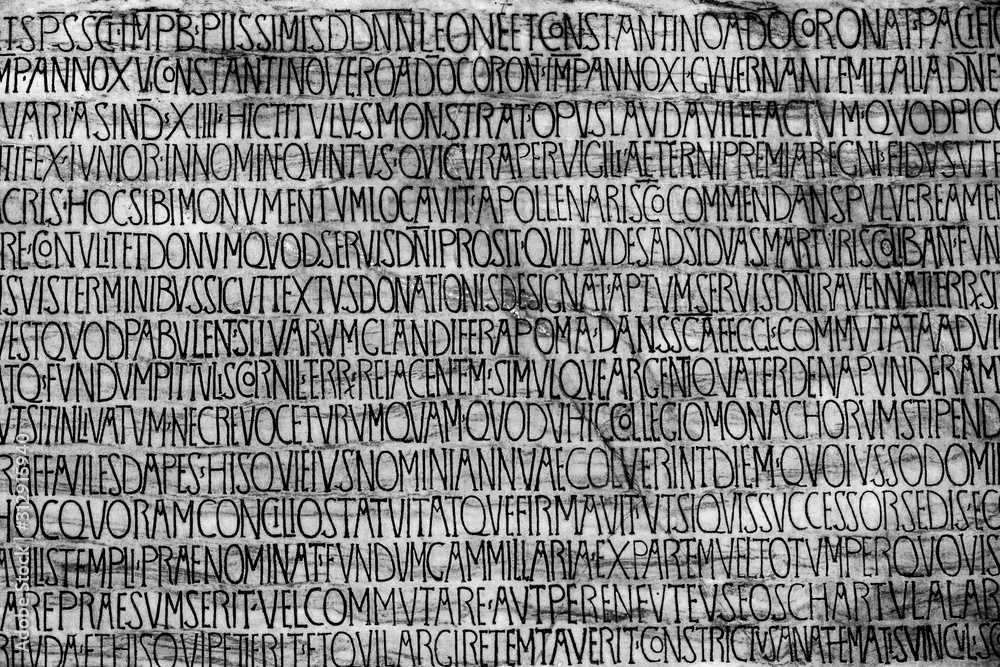 TSPSSCI·IMPB·PIISSIMISDDNNLEONEETCONSTANTINOADOCORONAT·PACIFIC
MPANNOXVCONSTANTINOVEROADOCORON·IMPANNOXI·GVVERNANTEMITALIADNE
VARIASIND·XIIII·HICTITVLVSMONSTRATOPVSLAVDAVILEFACTVM·QVODPIO
TIFEX·IVNIOR·INNOMINEQVINTVS·QVICVRAPERVIGILIAETERNIPREMIAREGNI·FIDVSVTE
CRIS·HOCSIBIMONVMENTVMLOCAVIT·APOLLENARISCOCOMMENDANSPVLVEREAMEM
RE·CONTVLITETDONVMQVODSERVISDNIPROSIT·QVILAVDESADSIDVASMARTYRISCOLIBANT·FVN
SVISTERMINIBVSSICVTTEXTVSDONATIONISDESIGNAT·APTVMSERVISDNIRAVENNATITERR·SI
VESTQVODPABVLENT·SILVARVMGLANDIFERAPOMA·DANSSCAEECCL·COMMVTATAADVE
TQ·FVNDVMPITTVLISCORNIL·TERR·REIACENTEM·SIMVLQVEARGENTIQVATERDENAPVNDERAM
VTSITINLIVATVM·NECREVOCETVRVMQVAM·QVODVHICCOLLEGIOMONACHORVMSTIPEND
EFFAVILESDAPES·HISQVIEIVSNOMINIANNVAECOLVERINTDIEM·QVOIVSSODOMI
HOCQVORAMCONCILIOSTATVITATQVEFIRMAVIT·VTSIQVISSVCCESSORSEDISEC
TEMPLI·PRAENOMINATFVNDVMGAMMILLARIA·EXPARTEMVELTOTVMPERQVOVIS
REPRAESVMSERIT·VELCOMMVTARE·AVTPERENFVTEVSEOSCHARTVLALAR
DAETHISQVIPETIERITETQVILARGIRETEMTAVERIT·CONSTRICTVSANATEMATISVINCVLIS